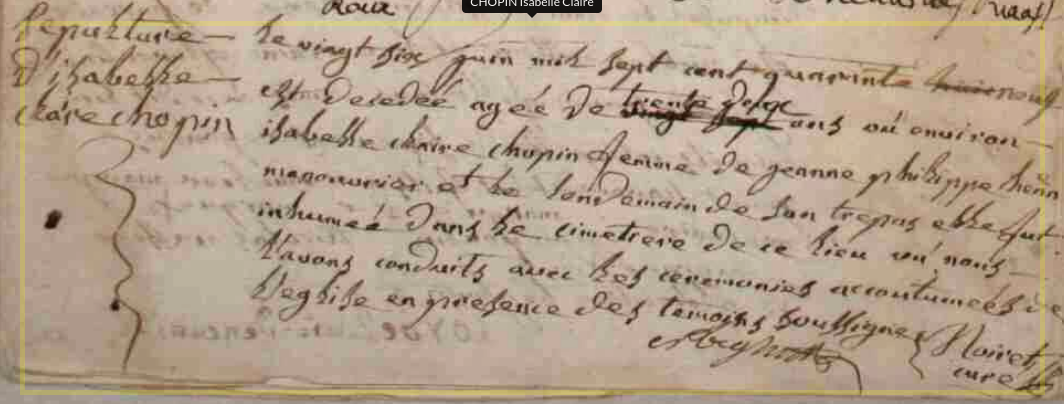 CHOPIN Isabelle Claire
Sepulture
D'isabelle
claire chopin
Le vingt six juin mil sept cent quarante huit neuf
est decedeé ageé de vingt sept trente deux ans ou environ
isabelle claire chopin femme de jeanne philippe
manouvrier et le lendemain de son trepas elle fut
inhumeé dans le cimetiere de ce lieu ou nous
l'avons conduits avec les ceremonies accoutumeés de
l'eglise en presence des temoins soussignes
Noiret
curé